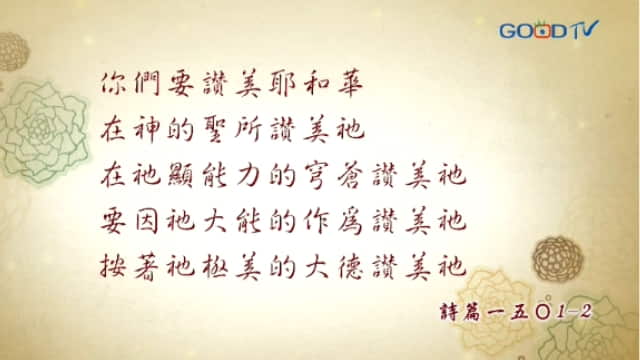 GOODTV
你們要讚美耶和華
在神的聖所讚美祂
在祂顯能力的穹蒼讚美祂
要因祂大能的作為讚美祂
按著祂極美的大德讚美祂
詩篇一五〇1-2